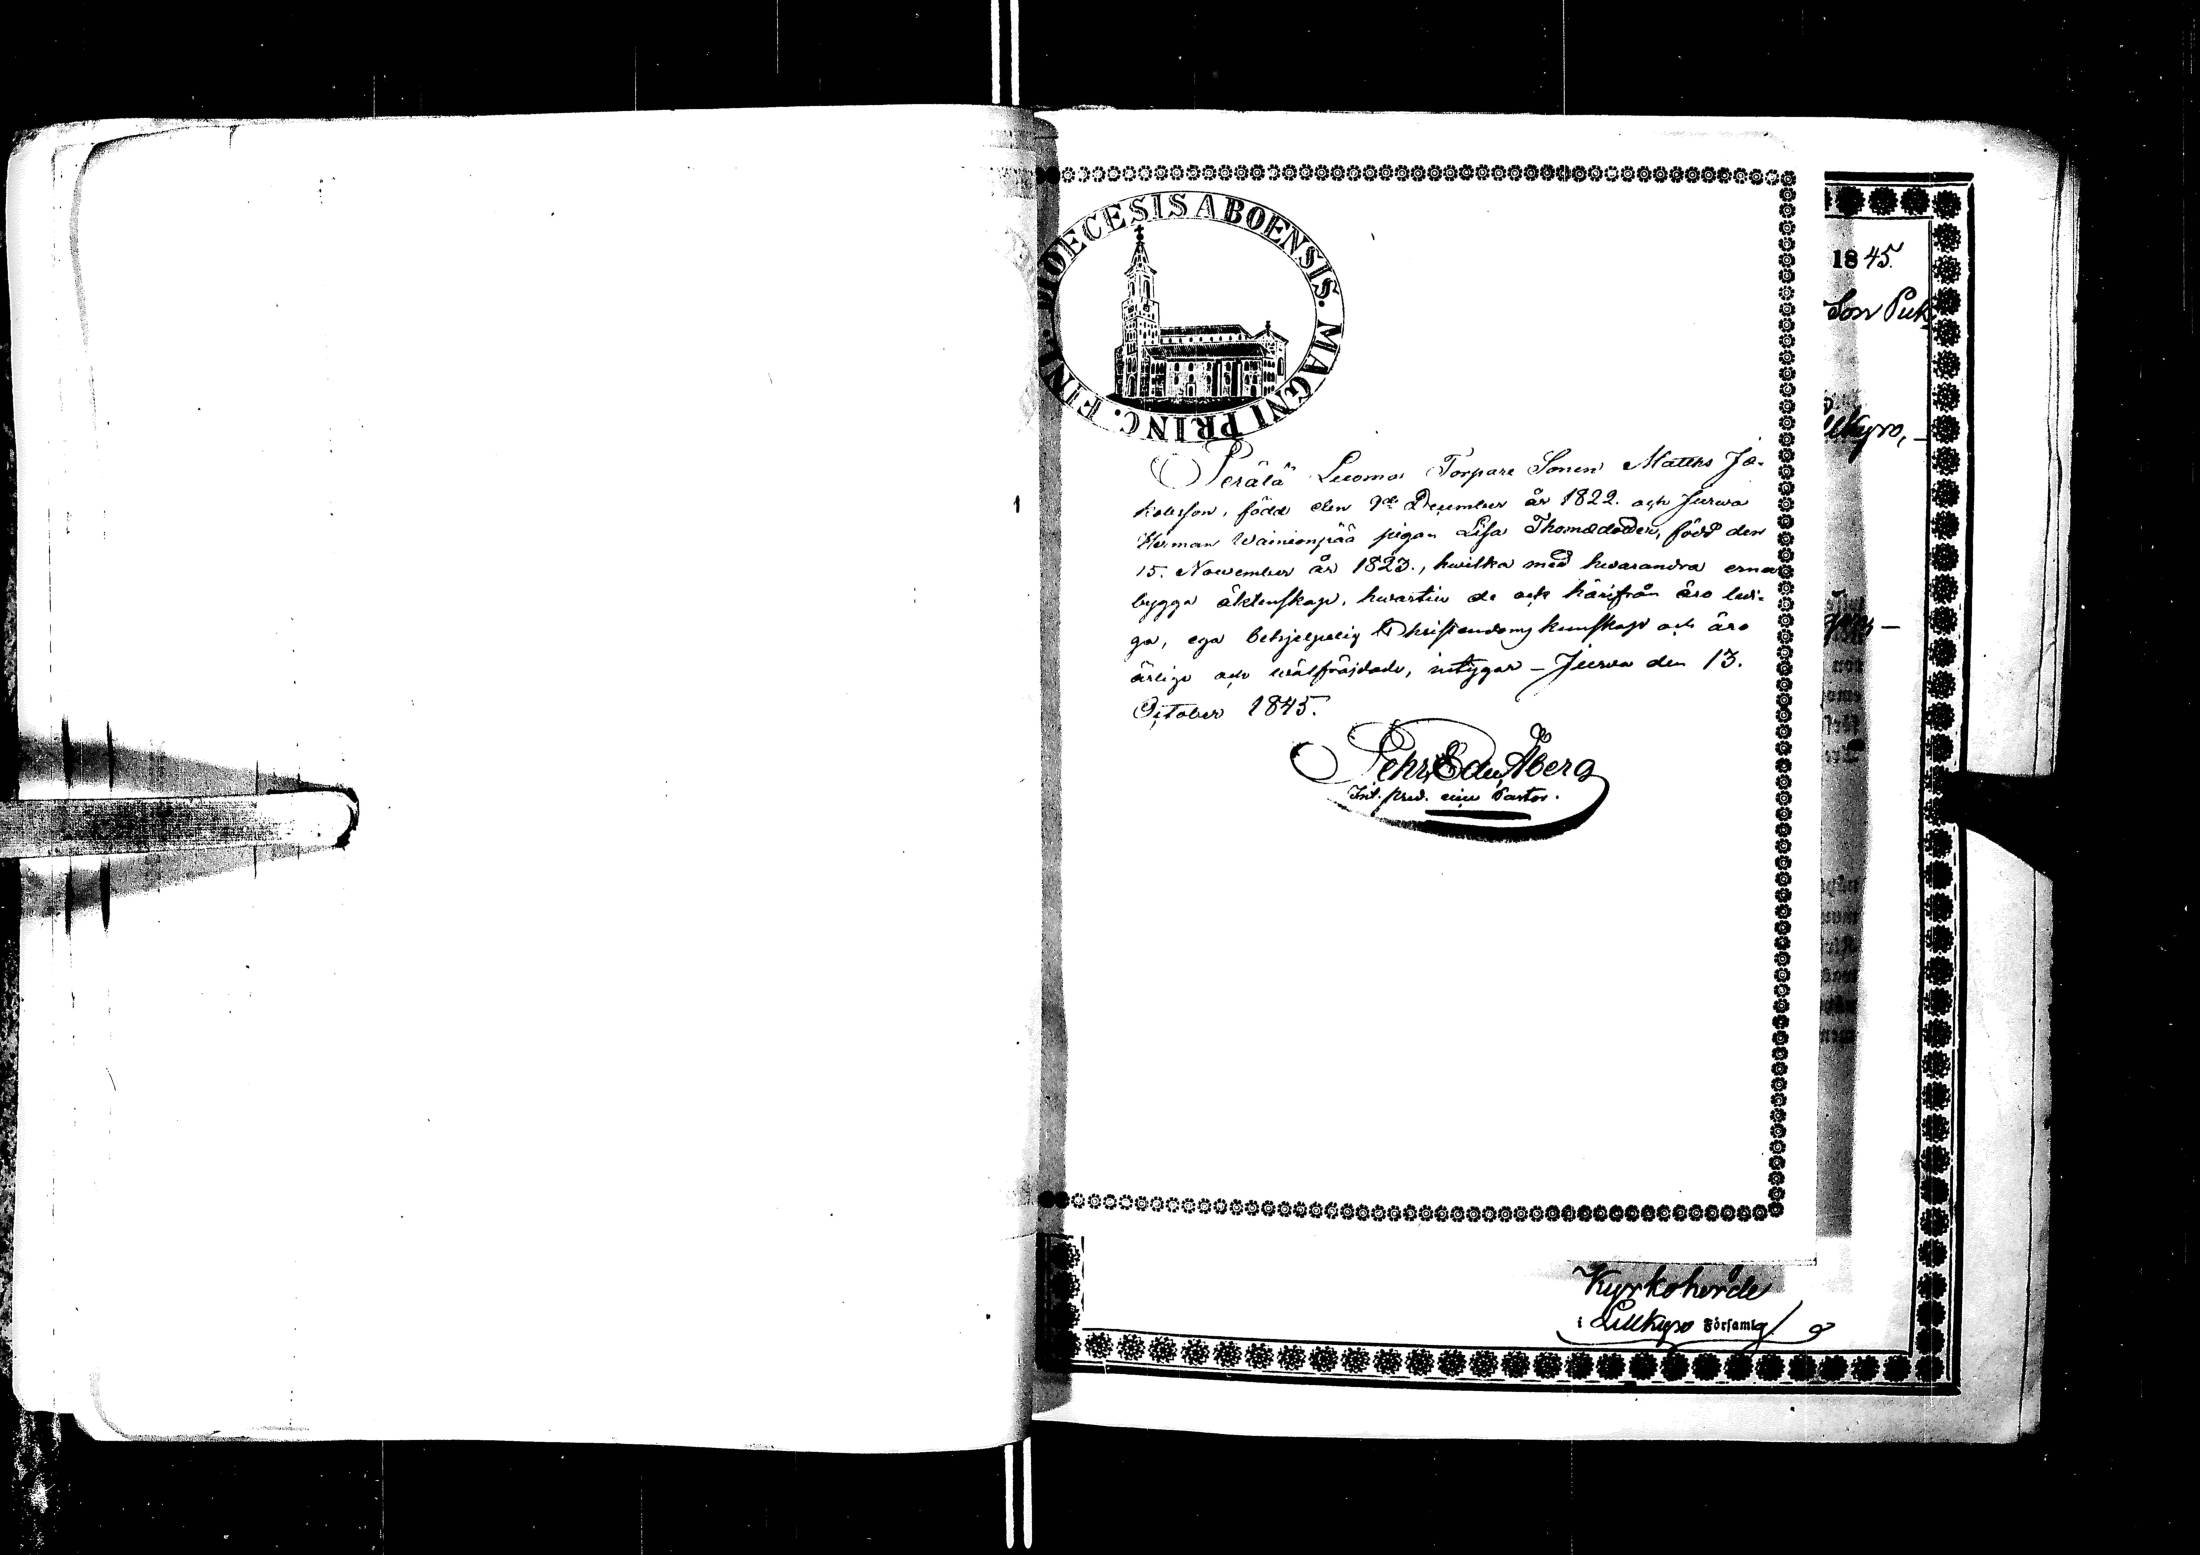 DIOECESIS ABOENSIS. MAGNI PRINC. FINL.
Perälä Luoma Torpare Sonen Matths Ja-
kobsson, född den 9de December år 1822. och Jurwa
Herman Wainionpää pigan Lisa Thomædotter, född den
15. November år 1823., hwilka med hwarandra erna
bygga äktenskap, hwartill de ock härifrån äro ledi-
ga, ega behjelpelig Christendoms kunskap och äro
ärlige och wälfräjdade, intygar – Jurwa den 13.
October 1845.
Pehr Edv. Åberg
Int. pred. 
Pastor.
1
1845.
Son
Lillkyro, –
Kyrkoherde
i Lillkyro Församlg